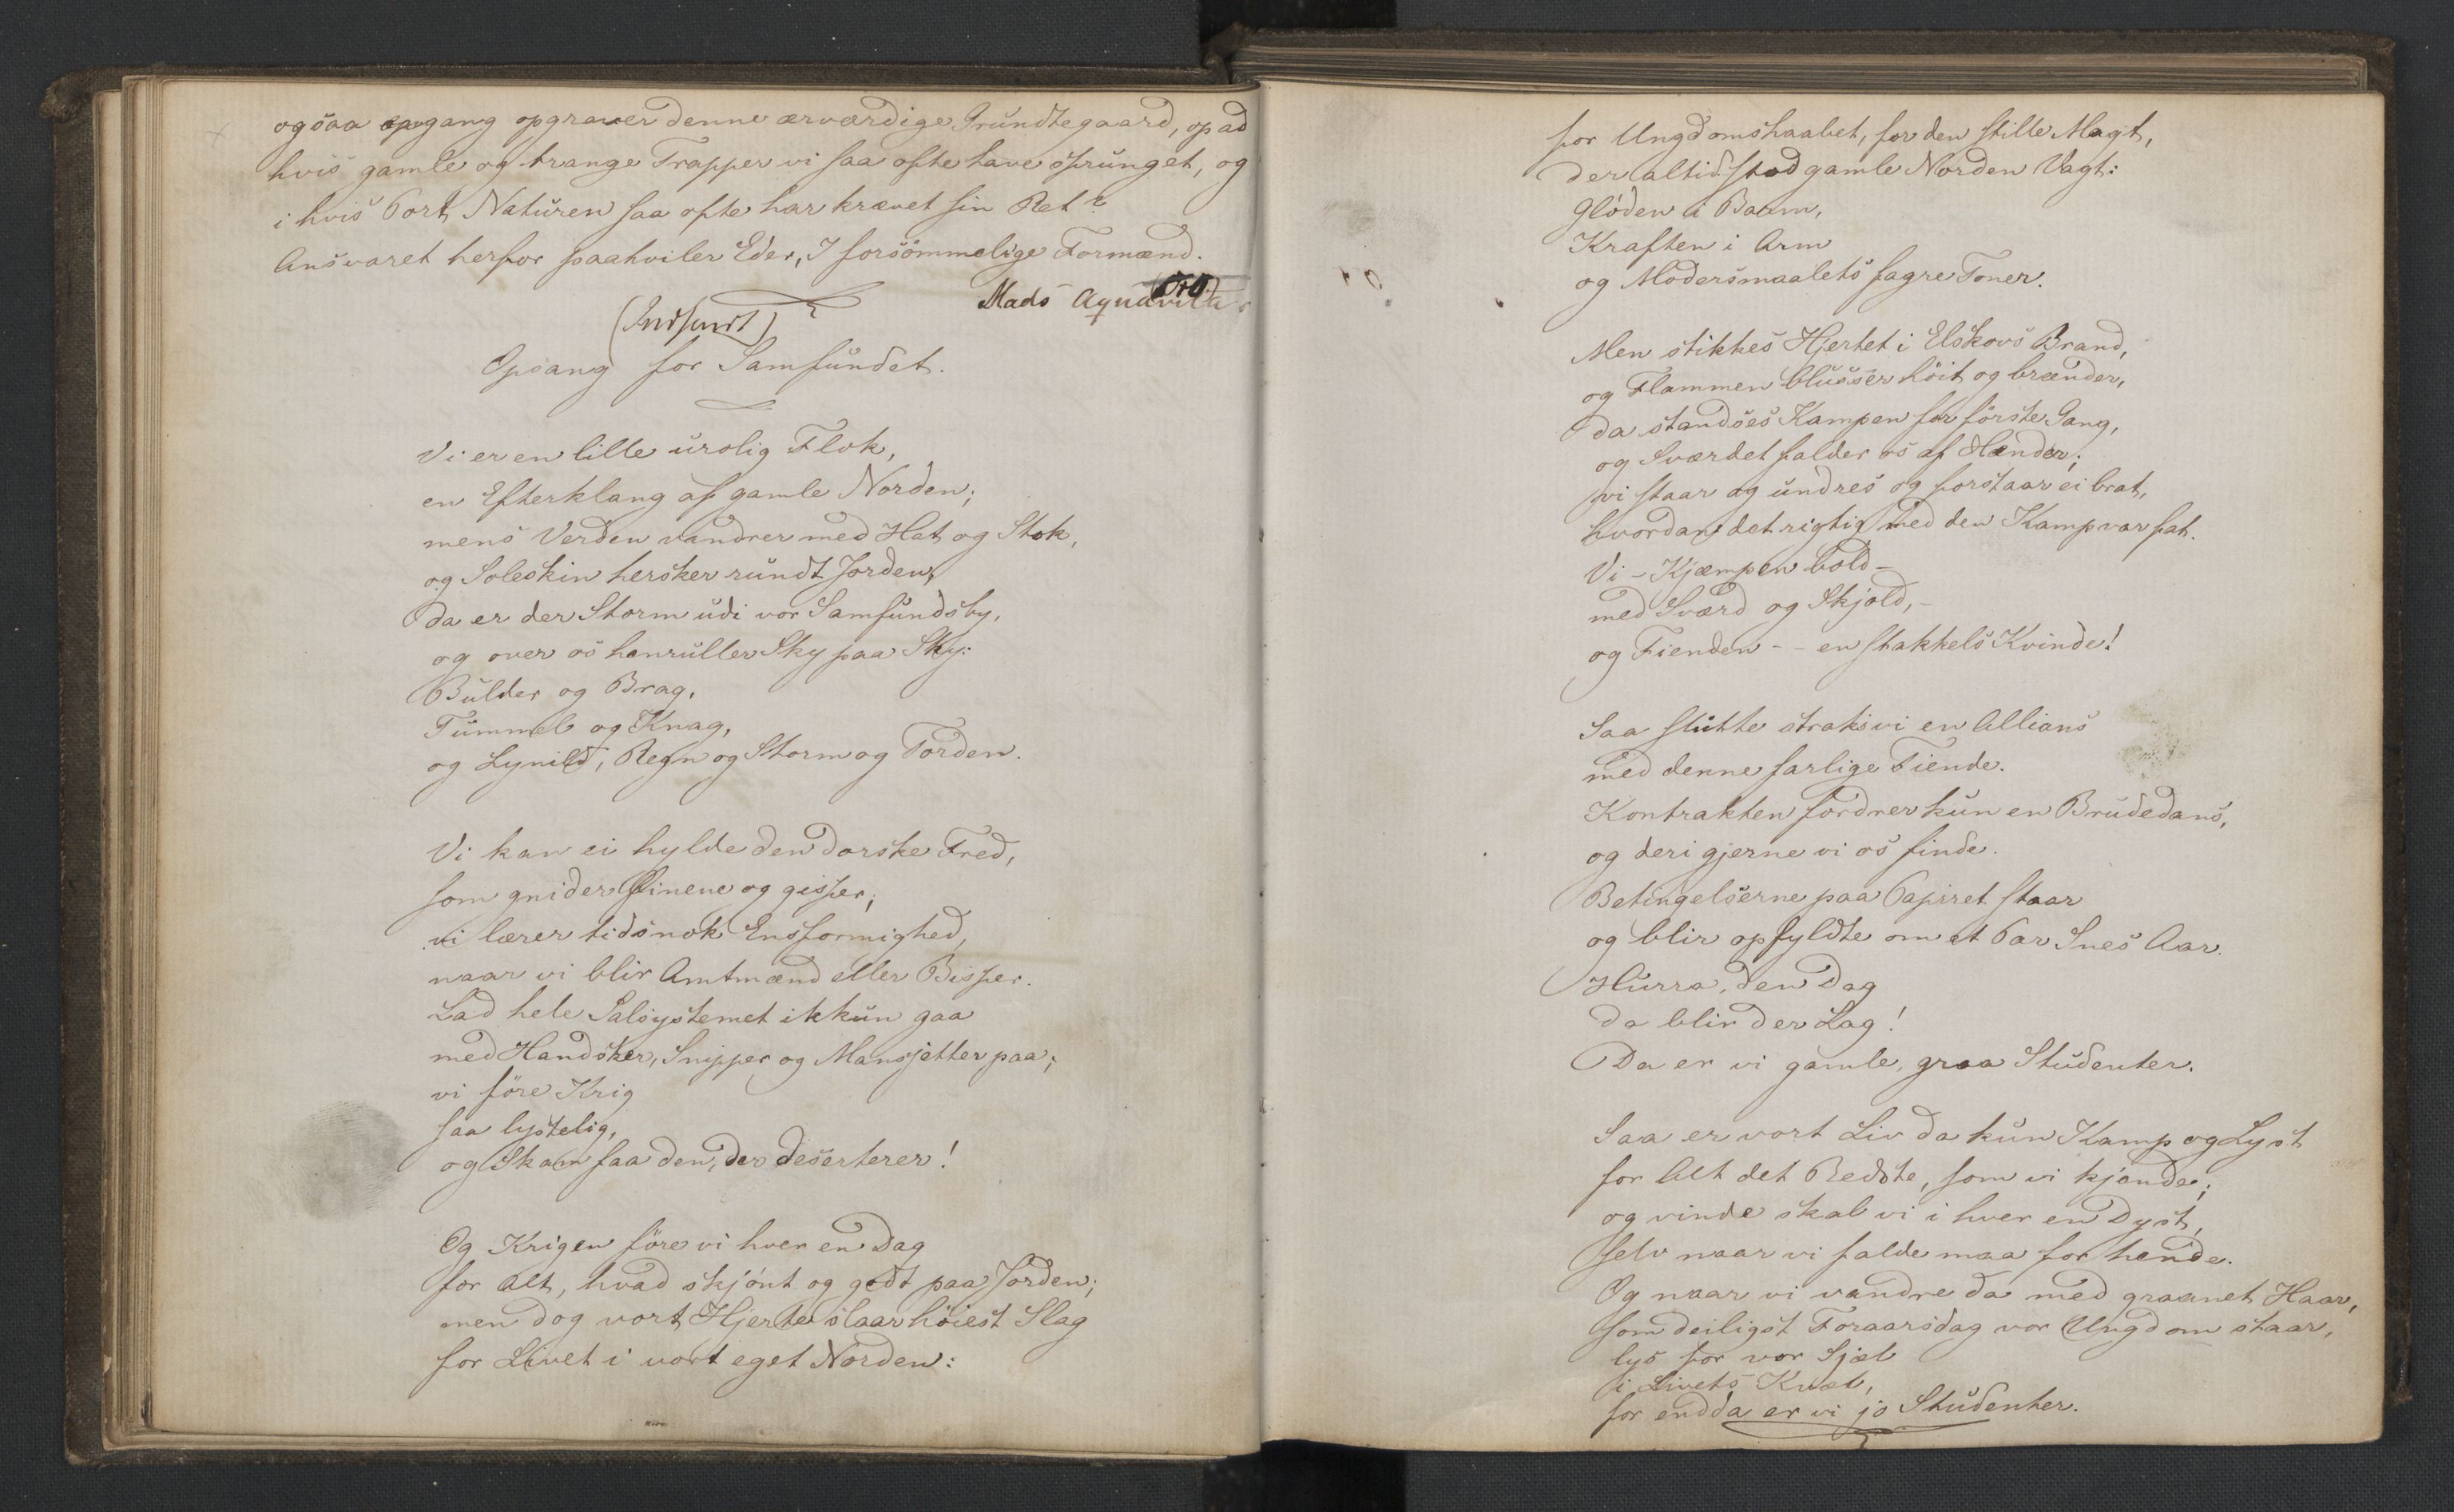 ogsaa engang opgraver denne ærværdige Grundtegaard, opad
hvis gamle og trange Trapper vi saa ofte have sprunget, og
i hvis Port Naturen saa ofte har krævet sin Ret?
Ansvaret herfor paahviler Eder, I forsömmelige Formænd.
Mads Aqua
(Indsendt)
Opsang for Samfundet.
Vi er en lille urolig Flok,
en Efterklang af gamle Norden;
mens Verden vandrer med Hat og Stok,
og Soleskin hersker rundt Jorden,
da er der Storm udi vor Samfundsby,
og over os henruller Sky paa Sky:
Bulder og Brag,
Tummel og Knag,
og Lynild, Regn og Storm og Torden.
Vi kan ei hylde den dorske Fred,
som gnider Öinene og gisper;
vi lærer tidsnok Ensformighed,
naar vi blir Amtmænd eller Bisper.
Lad hele Salsystemet ikkun gaa
med Handsker, Snipper og Mansjetter paa;
vi före Krig
saa lystelig,
og Skam faa den, der deserterer!
Og Krigen före vi hver en Dag
for Alt, hvad skjönt og godt paa Jorden;
men dog vort Hjerte slaar höiest Slag
for Livet i vort eget Norden:
for Ungdomshaabet, for den stille Magt,
der altid stod gamle Norden Vagt:
Glöden i Barm,
Kraften i Arm
og Modersmaalets fagre Toner.
Men stikkes Hjertet i Elskovs Brand,
og Flammen blusser höit og brænder,
da standses Kampen for förste Gang,
og Sværdet falder os af Hænder;
vi staar og undres og forstaar ei brat,
hvordan det rigtig med den Kamp var fat.
Vi – Kjæmpen bold –
med Sværd og Skjold, –
og Fienden – – en stakkels Kvinde!
Saa slutte straks vi en Allians
med denne farlige Fiende.
Kontrakten fordrer kun en Brudedans,
og deri gjerne vi os finde.
Betingelserne paa Papiret staar
og blir opfyldte om et Par Snes Aar.
Hurra, den Dag
da blir der Lag!
Da er vi gamle, graa Studenter.
Saa er vort Liv da kun Kamp og Lyst
for Alt det Bedste, som vi kjende;
og vinde skal vi i hver en Dyst,
selv naar vi falde maa for hende.
Og naar vi vandre da med graanet Haar,
som deiligst Foraarsdag vor Ungdom staar,
lys for vor Sjæl
i Livets Kvæl,
for endda er vi jo Studenter.